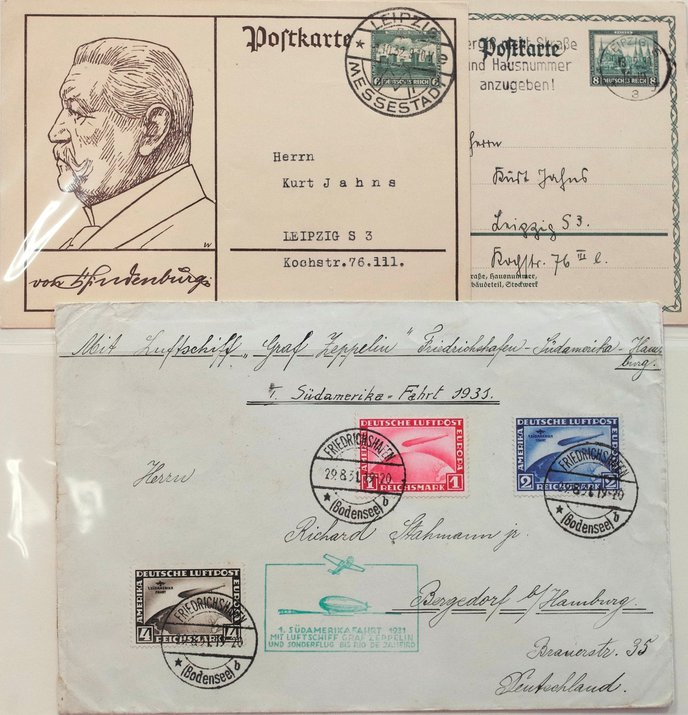 Postkarte
LEIPZIG
MESSESTADT
8 DEUTSCHES REICH 8
Herrn
Kurt Jahns
LEIPZIG S 3
Kochstr.76.111.
von Hindenburg
Postkarte
Straße
und Hausnummer
anzugeben!
LEIPZIG
8 DEUTSCHES REICH 8
Herrn
Kurt Jahns
Leipzig S 3.
Kochstr. 76 III l.
raße, Hausnummer,
bäudeteil, Stockwerk
Mit Luftschiff „Graf Zeppelin" Friedrichshafen-Südamerika-Ham
burg.
1. Südamerika-Fahrt 1931.
DEUTSCHE LUFTPOST
EUROPA
1 REICHSMARK 1
FRIEDRICHSHAFEN
29.8.31.19-20
(Bodensee) b
DEUTSCHE LUFTPOST
AMERIKA
EUROPA
2 REICHSMARK
FRIEDRICHSHAFEN
29.8.31.19-20
(Bodensee) b
Herrn
Richard Stahmann jr.
Bergedorf b/Hamburg.
Brauerstr. 35
Deutschland.
DEUTSCHE LUFTPOST
AMERIKA
EUROPA
4 REICHSMARK 4
FRIEDRICHSHAFEN
19-20
(Bodensee) b
1. SÜDAMERIKAFAHRT 1931
MIT LUFTSCHIFF GRAF ZEPPELIN
UND SONDERFLUG BIS RIO DE JANEIRO